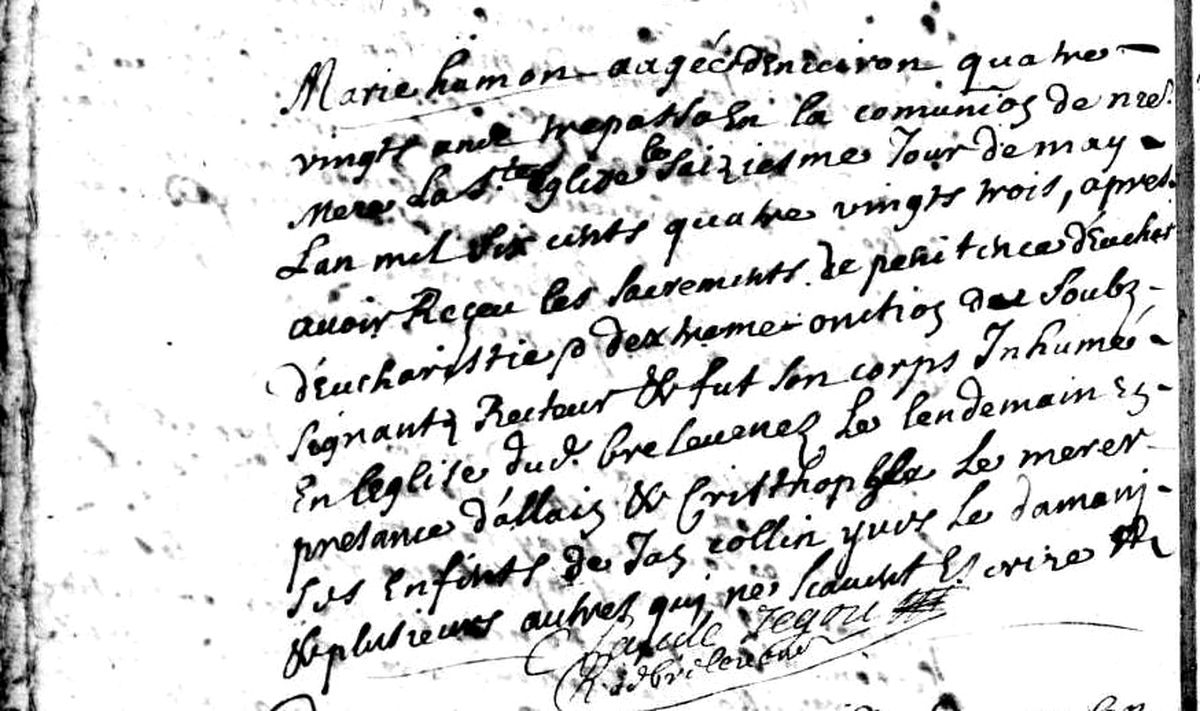 Marie hamon aagée d'environ quatre
vingts ans trepassa En la comunion de nre
Mere la Ste Eglise le Seiziesme Jour de may
Lan mil six cents quatre vingts trois, apres
avoir Reçeu les sacrements de penitence d'euchar
d'Eucharistie & dextreme onction du soubz
signant Recteur & fut son corps Inhumé
En leglise dud. brelevenez le lendemain En
presance d'allain & Cristhophle le merer
ses enfents de Jan collin yves le damani
& plusieurs autres qui ne scavent Escrire
Claude Jegou
R. de brelevenez